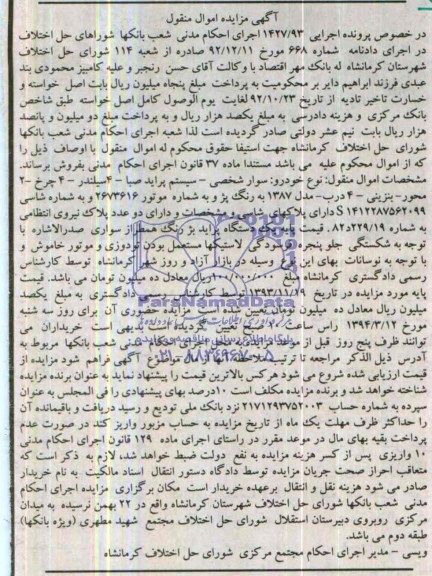 آگهی مزایده اموال منقول
در خصوص پرونده اجرایی ۱۴۲۷/۹۳ اجرای احکام مدنی شعب بانکها شوراهای حل اختلاف
در اجرای دادنامه شماره ۶۶۸ مورخ ۹۲/۱۲/۱۱ صادره از شعبه ۱۱۴ شورای حل اختلاف
شهرستان کرمانشاه له بانک مهر اقتصاد با وکالت آقای حسن رنجبر و علیه کامبیز محمودی بند
عبدی فرزند ابراهیم دایر بر محکومیت به پرداخت مبلغ پنجاه میلیون ریال بابت اصل خواسته و
خسارت تاخیر تادیه از تاریخ ۹۲/۱۰/۲۳ لغایت یوم الوصول کامل اصل خواسته طبق شاخص
بانک مرکزی و هزینه دادرسی به مبلغ یکصد هزار ریال و به پرداخت مبلغ دو میلیون و پانصد
هزار ریال بابت نیم عشر دولتی صادر گردیده است لذا شعبه اجرای احکام مدنی شعب بانکها
شورای حل اختلاف کرمانشاه جهت استیفا حقوق محکوم له اموال منقول با اوصاف ذیل را
که از اموال محکوم علیه می باشد مستندا ماده ۳۷ قانون اجرای احکام مدنی بفروش برساند.
مشخصات اموال منقول: نوع خودرو: سوار شخصی - سیستم پراید صبا - ۴سیلندر - ۴چرخ -۲
محور- بنزینی - ۴درب- مدل ۱۳۸۷ به رنگ بژ و به شماره موتور ۲۶۷۳۶۱۶ و به شماره شاسی
S۱۴۱۲۲۸۷۵۶۲۰۹۹ دارای پلاکهای شناسه مشخصات و دارای دو عدد پلاک نیروی انتظامی
به شماره ۲۲۹/۱۹د۸۲. قیمت پایه یک دستگاه پراید بژ رنگ ۴ سواری صدرالاشاره با
توجه به شکستگی جلو پنجره فرورفتگی لاستیکها مستعمل بودن تودوزی و موتور خاموش و
با توجه به نوسانات بهای این نوع وسیله در بازار آزاد و روز شهر کرمانشاه توسط کارشناس
رسمی دادگستری کرمانشاه مبلغ ۱۰۰/۰۰۰/۰۰۰ ریال معادل ده میلیون تومان می باشد. قیمت
پایه مورد مزایده در تاریخ ۱۳۹۳/۱۱/۱۹ توسط کارشناس دادگستری به مبلغ یکصد
میلیون ریال معادل ده میلیون تومان تعیین شده است مزایده حضوری آن برای روز سه شنبه
مورخ ۱۳۹۴/۳/۱۲ راس ساعت تعیین گردیده است. بدیهی است خریداران می
توانند ظرف پنج روز قبل از موعد مزایده به محل اجرای احکام مدنی شعب بانکها مربوط به
آدرس ذیل الذکر مراجعه تا ترتیب ملاحظه آنها از مال موضوع آگهی فراهم شود مزایده از
قیمت ارزیابی شده شروع می شود هرکس بالاترین قیمت را پیشنهاد نماید به عنوان برنده مزایده
شناخته خواهد شد و برنده مزایده مکلف است ۱۰درصد بهای پیشنهادی را فی المجلس به عنوان
سپرده به شماره حساب ۲۱۷۱۲۹۳۷۵۲۰۰۳ نزد بانک ملی تودیع و رسید دریافت و باقیمانده آن
را حداکثر ظرف مهلت یک ماه از تاریخ مزایده به حساب مزبور واریز کند در صورت عدم
پرداخت بقیه بهای مال در موعد مقرر در راستای اجرای ماده ۱۲۹ قانون اجرای احکام مدنی
۱۰ واریزی پس از کسر هزینه مزایده به نفع دولت ضبط خواهد شد، لازم به ذکر است که
متعاقب احراز صحت جریان مزایده توسط دادگاه دستور انتقال اسناد مالکیت به نام خریدار
صادر می شود هزینه نقل و انتقال برعهده خریدار است مکان برگزاری مزایده اجرای احکام
مدنی شعب بانکها شورای حل اختلاف شهرستان کرمانشاه واقع در ۲۲ بهمن نرسیده به میدان
مرکزی روبروی دبیرستان استقلال شورای حل اختلاف مجتمع شهید مطهری (ویژه بانکها)
طبقه دوم می باشد.
ویسی - مدیر اجرای احکام مجتمع مرکزی شورای حل اختلاف کرمانشاه
ParsNamadData